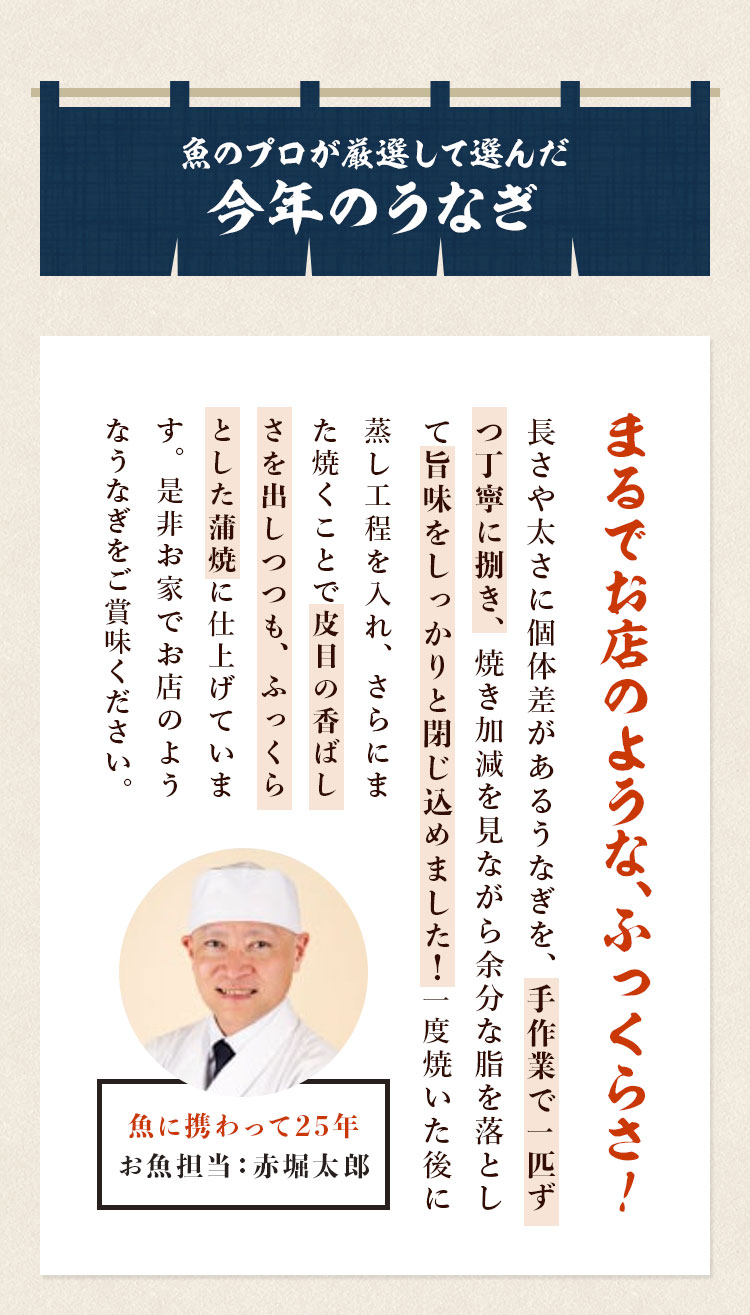 魚のプロが厳選して選んだ
今年のうなぎ
まるでお店のような、ふっくらさ！
長さや太さに個体差があるうなぎを、手作業で一匹ず
つ丁寧に捌き、焼き加減を見ながら余分な脂を落とし
て旨味をしっかりと閉じ込めました！一度焼いた後に
蒸し工程を入れ、さらにま
た焼くことで皮目の香ばし
さを出しつつも、ふっくら
とした蒲焼に仕上げていま
す。是非お家でお店のよう
なうなぎをご賞味ください。
魚に携わって25年
お魚担当：赤堀太郎